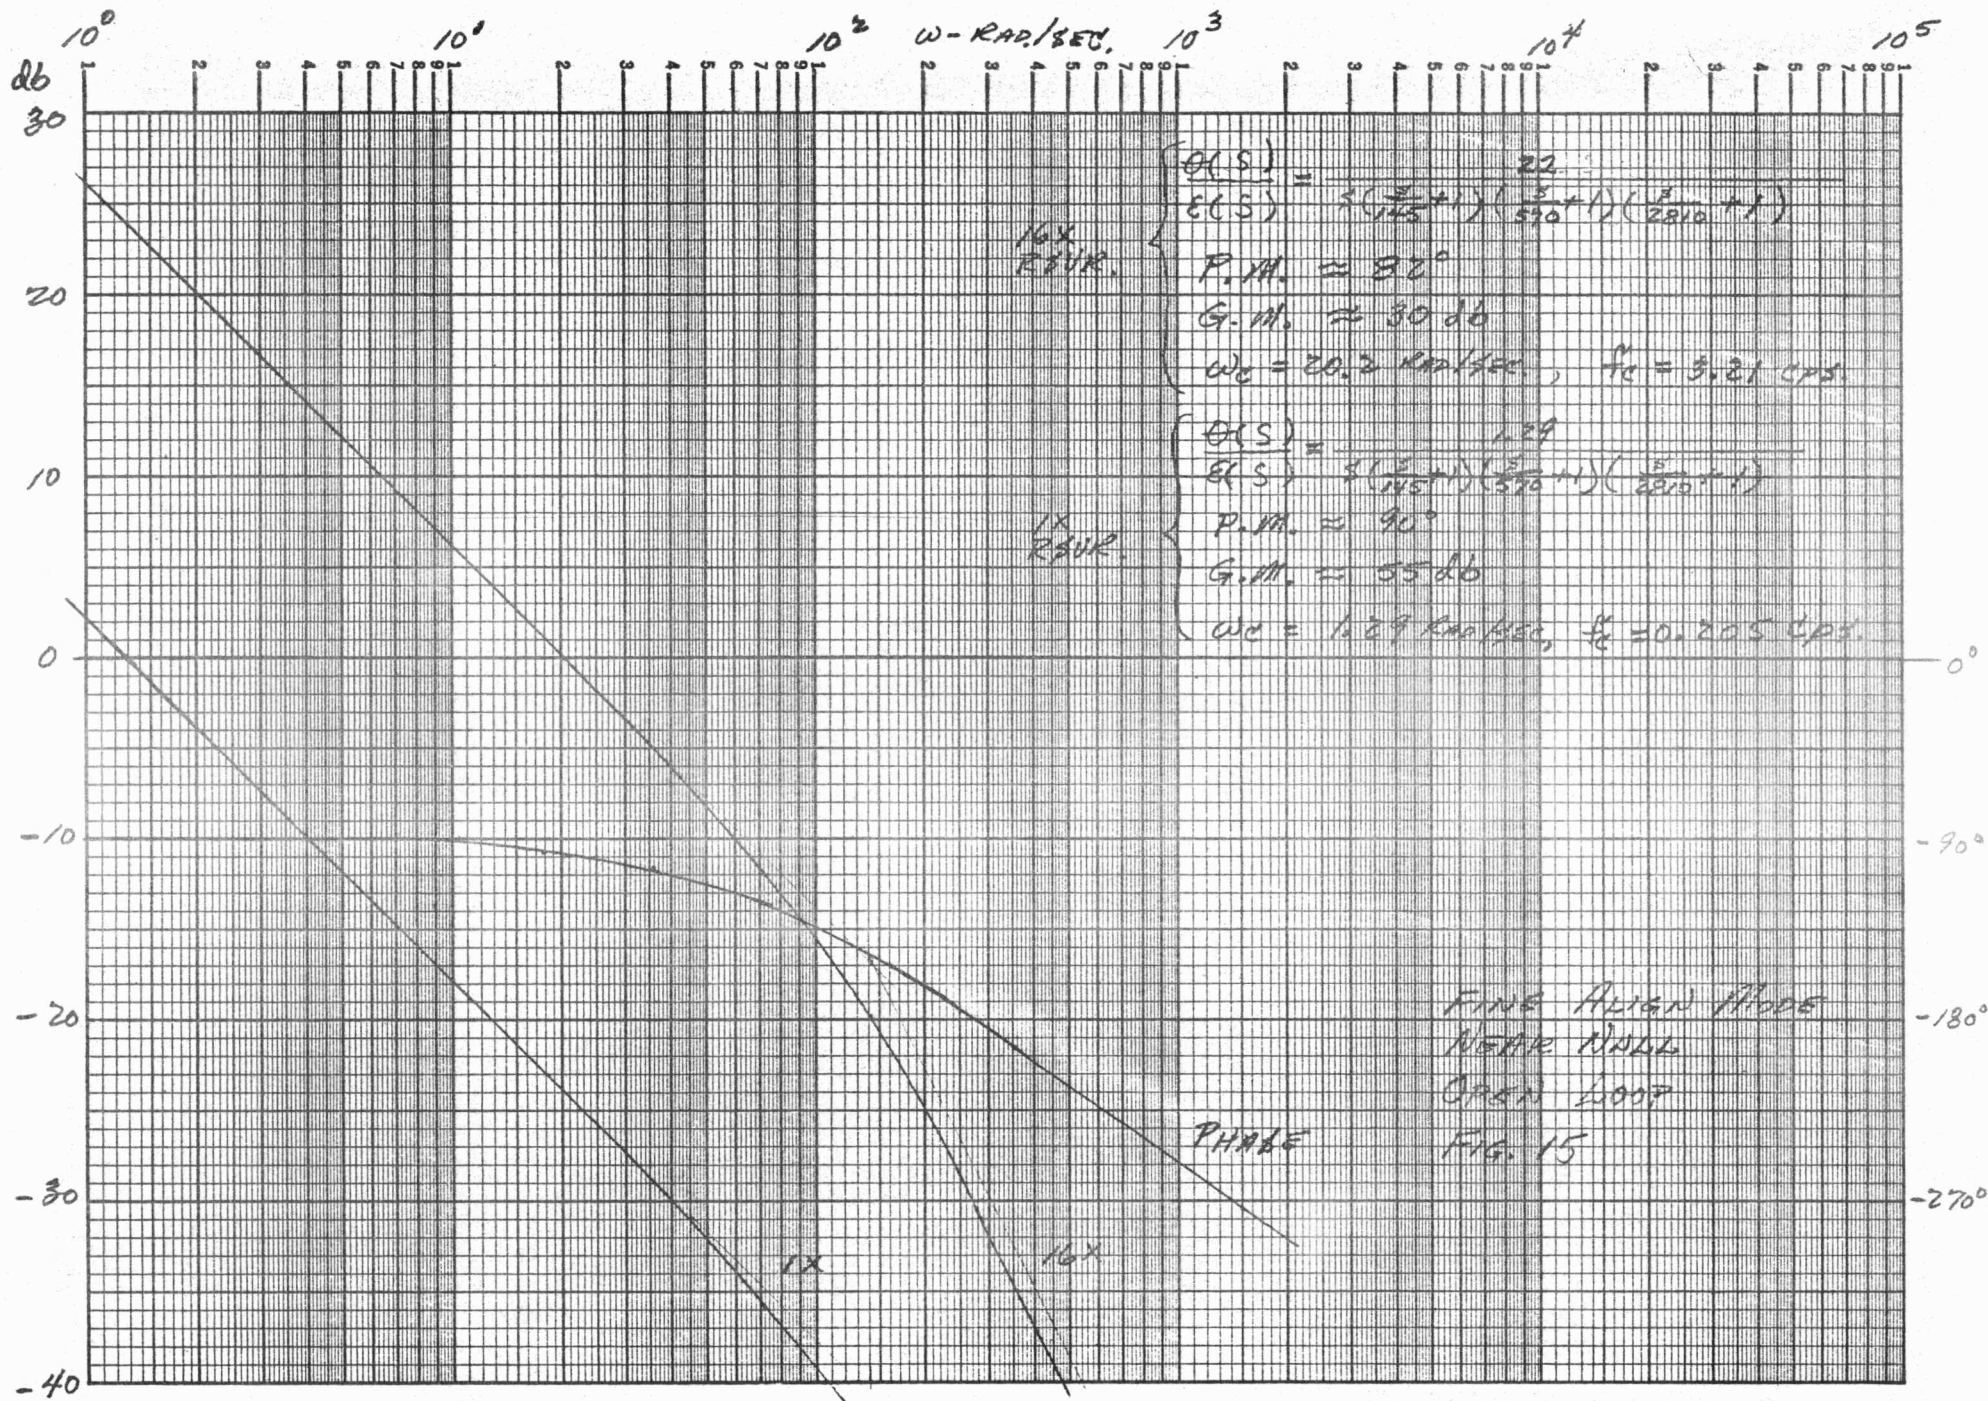 10⁰ 10¹ 10² ω-RAD./SEC. 10³ 10⁴ 10⁵
db
1 2 3 4 5 6 7 8 9 1 2 3 4 5 6 7 8 9 1 2 3 4 5 6 7 8 9 1 2 3 4 5 6 7 8 9 1 2 3 4 5 6 7 8 9 1
30
20
10
0
-10
-20
-30
-40
16X
RSVR.
θ(S)/ε(S) = 22/S(S/145+1)(S/590+1)(S/2810+1)
P.M. ≈ 82°
G.M. ≈ 30 db
ωc = 20.2 RAD/SEC., fc = 3.21 cps.
1X
RSVR.
θ(S)/ε(S) = 1.29/S(S/145+1)(S/590+1)(S/2810+1)
P.M. ≈ 90°
G.M. ≈ 55 db
ωc = 1.29 RAD/SEC, fc = 0.205 cps.
0°
-90°
-180°
-270°
FINE ALIGN MODE
NEAR NULL
OPEN LOOP
FIG. 15
PHASE
1X
16X